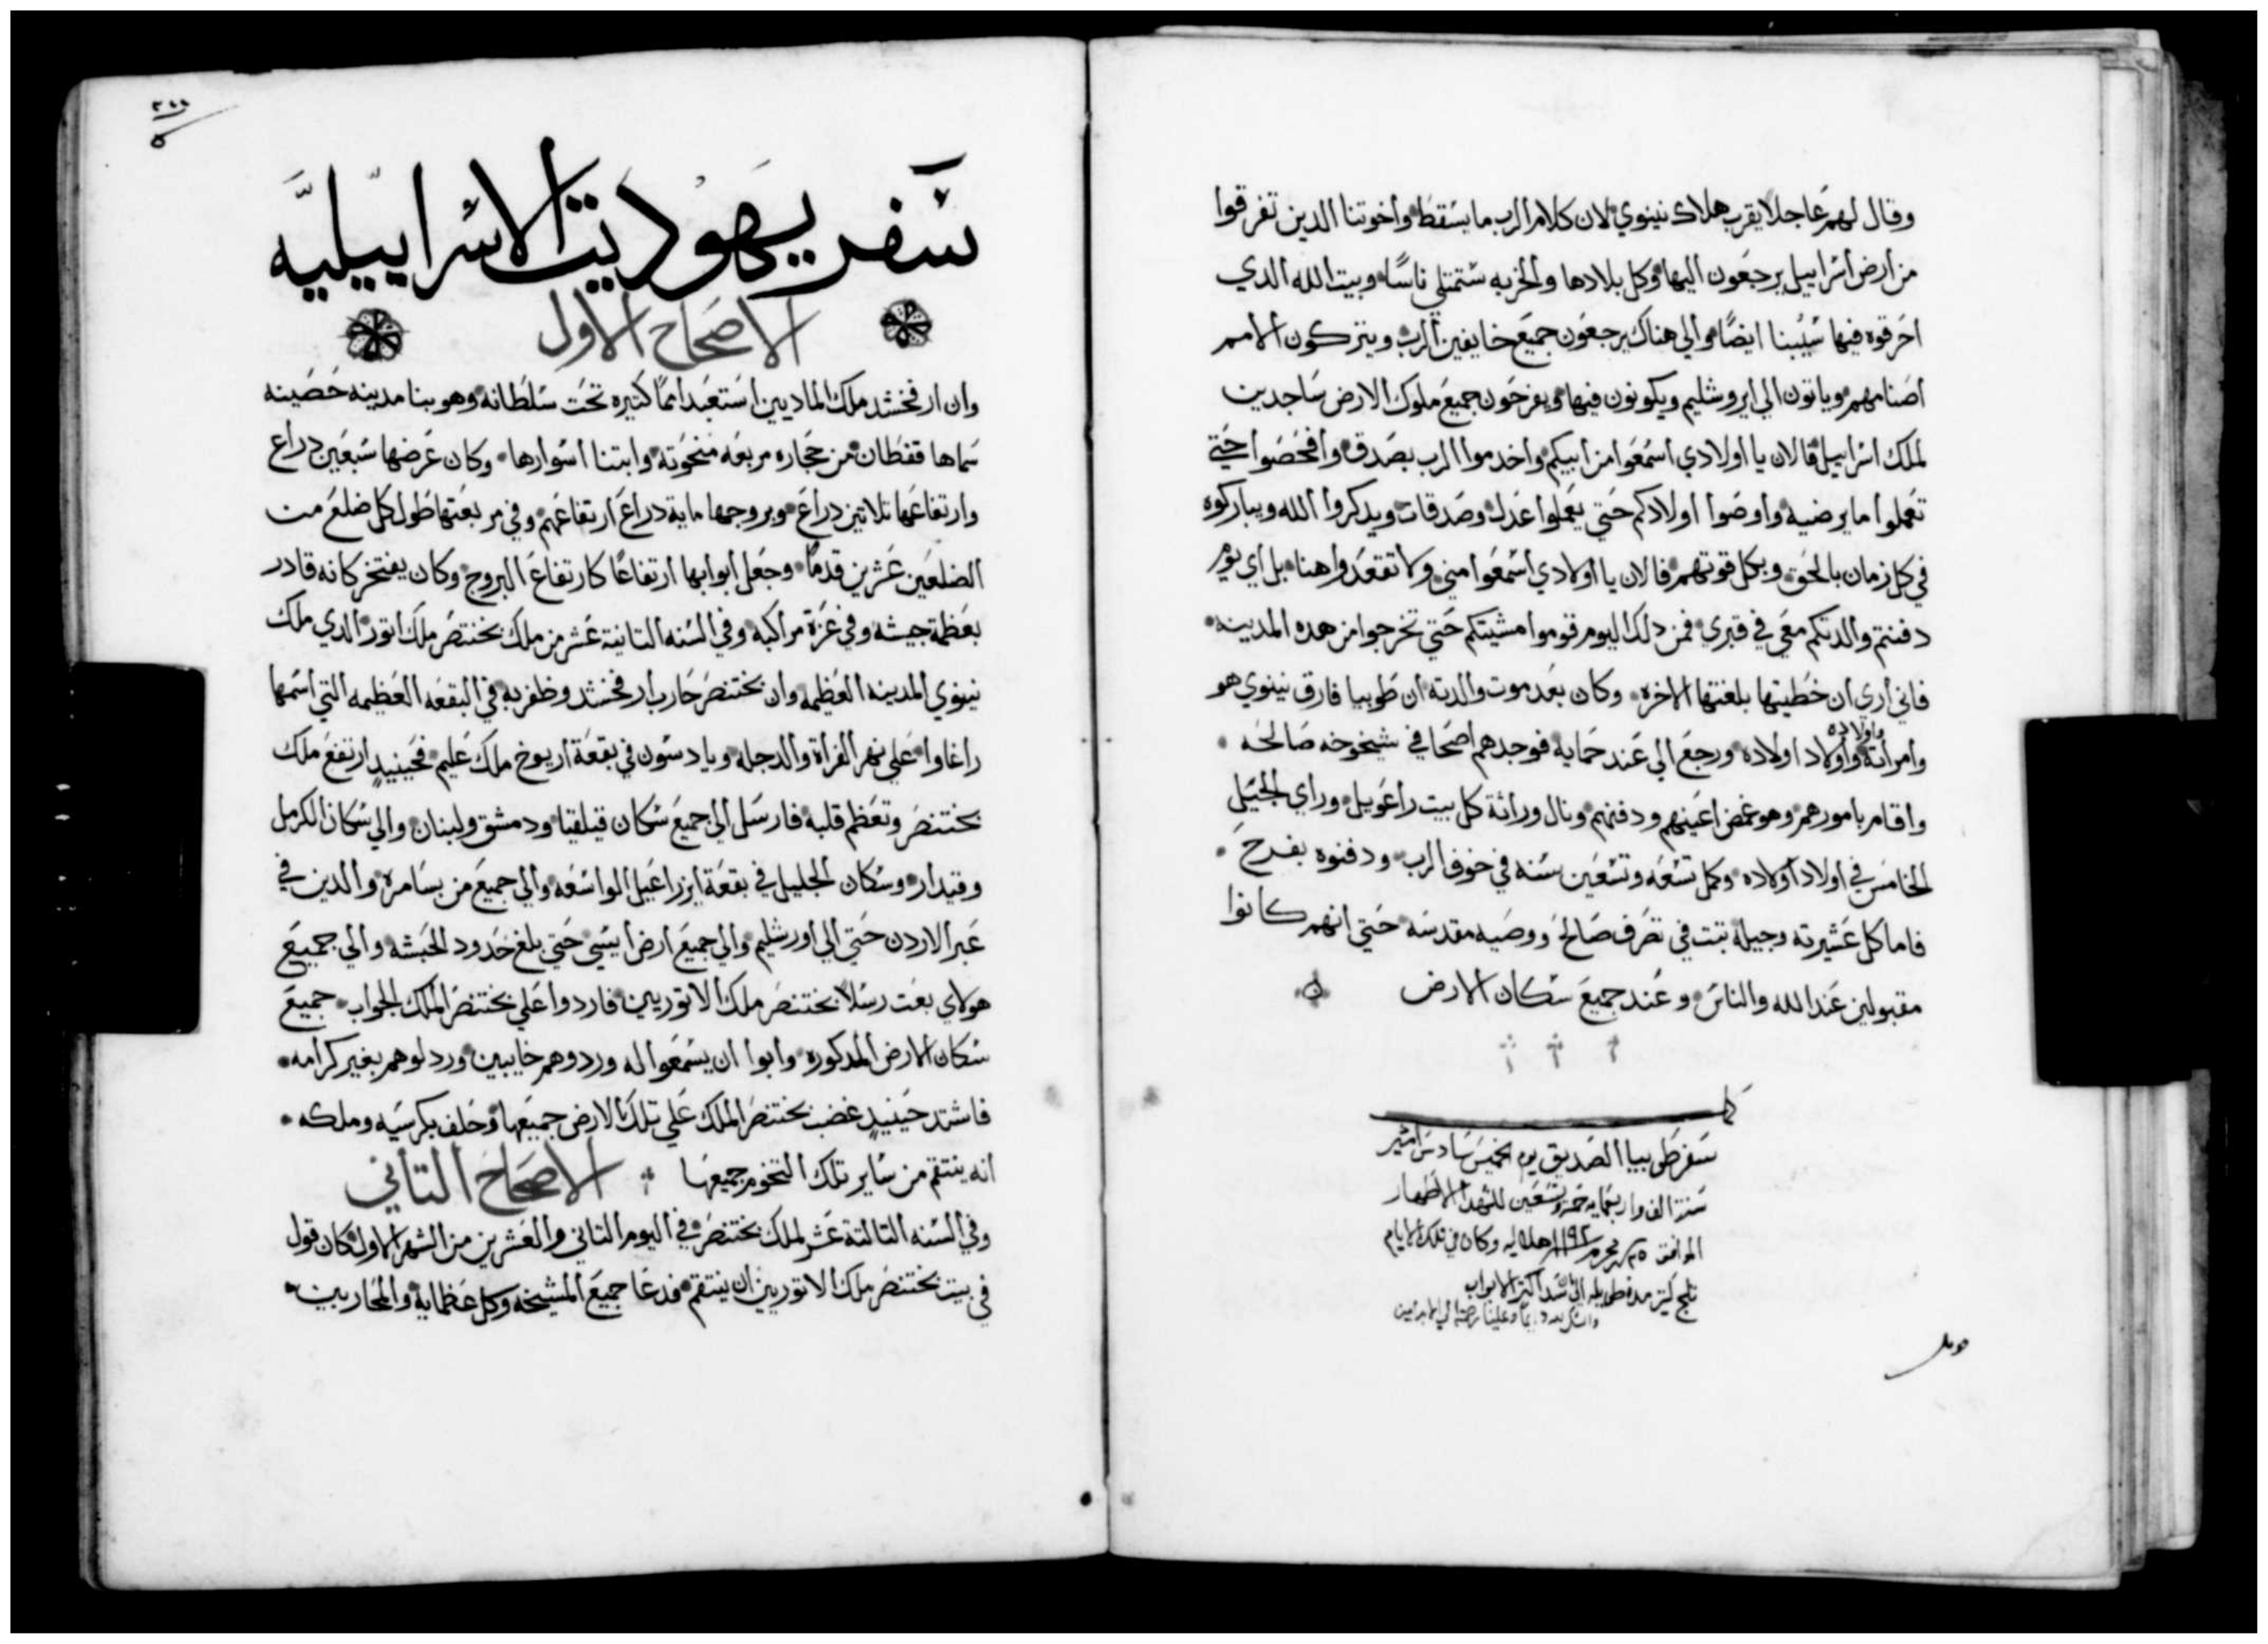 وقال لهم عاجلا يقرب هلاك نينوي لان كلام الرب ما يسقط واخوتنا الدين تفرقوا
من ارض اسراييل يرجعون اليها وكل بلادها والخربه ستمتلي ناسًا وبيت الله الدي
احرقوه فيها سيُبنا ايضًا والي هناك يرجعون جميع خايفين الرب ويتركون الامم
اصنامهم وياتون الي ايروشليم ويكونون فيها ويفرحون جميع ملوك الارض ساجدين
لملك اسراييل فالان يا اولادي اسمعوا من ابيكم واخدموا الرب بصدق وافحصوا حتي
تعملوا ما يرضيه واوصوا اولادكم حتي يعملوا عدل وصدقات ويدكروا الله ويباركوه
في كل زمان بالحق وبكل قوتهم فالان يا اولادي اسمعوا مني ولا تقعدوا هنا بل اي يوم
دفنتم والدتكم معي في قبري فمن دلك اليوم قوموا مشيتكم حتي تخرجوا من هده المدينه
فاني اري ان خطيتها بلغتها الاخره وكان بعد موت والدته ان طوبيا فارق نينوي هو
وامراته واولاده واولاد اولاده ورجع الي عند حمايه فوجدهم اصحا في شيخوخه صالحه
واقام بامورهم وهو غمض اعينهم ودفنهم ونال وراثة كل بيت راعويل وراي الجيل
الخامس في اولاد اولاده وكمل تسعه وتسعين سنه في خوف الرب ودفنوه بفرح
فاما كل عشيرته وجيله تبت في تصرف صالح ووصيه مقدسه حتي انهم كانوا
مقبولين عند الله والناس وعند جميع سكان الارض
كمل
سفر طوبيا الصديق يوم الخميس سادس امشير
سنة الف واربعمايه خمسه وتسعين للشهدا الاطهار
الموافق ٢٥ محرم ١١٩٣ هلاليه وكان في تلك الايام
تلج كتير مدة طويله الي ان سد اكتر الابواب
قوبل
٢٦٦
سفر يهوديت الاسراييليه
الاصحاح الاول
وان ارفخشد ملك الماديين استعبد اممًا كتيره تحت سلطانه وهو بنا مدينه حصينه
سماها قفطان من حجاره مربعه منحوته وابتنا اسوارها وكان عرضها سبعين دراع
وارتفاعها تلاتين دراع وبروجها مايه دراع ارتفاعهم وفي مربعتها طول كل ضلع من
الضلعين عشرين قدمًا وجعل ابوابها ارتفاعًا كارتفاع البروج وكان يفتخر كانه قادر
بعظمة جيشه وفي عزة مراكبه وفي السنه التانية عشر من ملك بختنصر ملك اتور الدي ملك
نينوي المدينه العظيمه وان بختنصر حارب ارفخشد وظفر به في البقعه العظيمه التي اسمها
راغاوا علي نهر الفراة والدجله ويادسون في بقعة اريوخ ملك عليم فحينيدٍ ارتفع ملك
بختنصر وتعظم قلبه فارسل الي جميع سكان قيلقيا ودمشق ولبنان والي سكان الكرمل
وقيدار وسكان الجليل في بقعة ايزراعيل الواسعه والي جميع من بسامره والدين في
عبر الاردن حتي الي اورشليم والي جميع ارض ايسي حتي بلغ حدود الحبشه والي جميع
هولاي بعت رسلًا بختنصر ملك الاتوريين فاردوا علي بختنصر الملك الجواب جميع
سكان الارض المدكوره وابوا ان يسمعوا له وردوهم خايبين وردلوهم بغير كرامه
فاشتد حينيدٍ غضب بختنصر الملك علي تلك الارض جميعها وحلف بكرسيه وملكه
انه ينتقم من ساير تلك التخوم جميعها الاصحاح التاني
وفي السنه التالتة عشر لملك بختنصر في اليوم التاني والعشرين من الشهر الاول كان قول
في بيت بختنصر ملك الاتوريين ان ينتقم فدعا جميع المشيخه وكل عظمايه والمحاربين